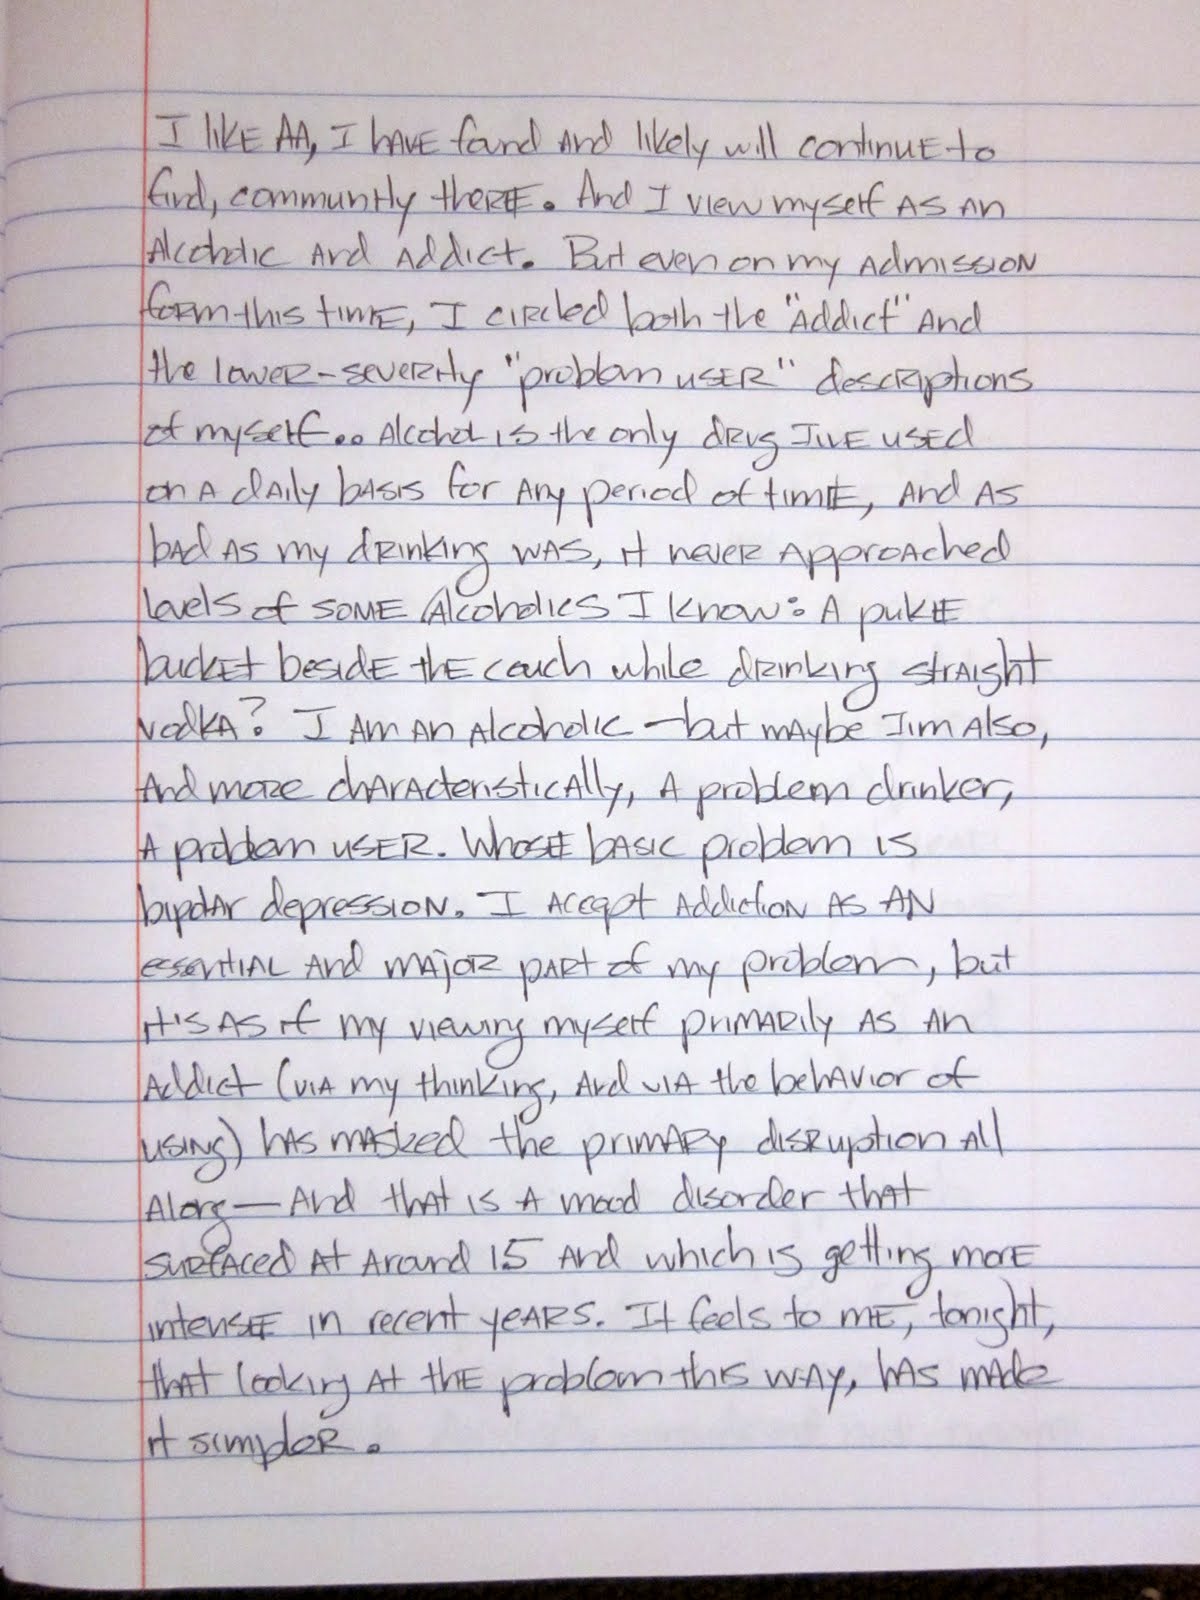 I like AA, I have found and likely will continue to
find, community there. And I view myself as an
Alcoholic and addict. But even on my admission
form this time, I circled both the "addict" and
the lower-severity "problem user" descriptions
of myself.. Alcohol is the only drug I've used
on a daily basis for any period of time, and as
bad as my drinking was, it never approached
levels of some Alcoholics I know: A puke
bucket beside the couch while drinking straight
vodka? I am an alcoholic – but maybe I'm also,
and more characteristically, a problem drinker,
a problem user. Whose basic problem is
bipolar depression. I accept addiction as an
essential and major part of my problem, but
it's as if my viewing myself primarily as an
addict (via my thinking, and via the behavior of
using) has masked the primary disruption all
along — and that is a mood disorder that
surfaced at around 15 and which is getting more
intense in recent years. It feels to me, tonight,
that looking at the problem this way, has made
it simpler.